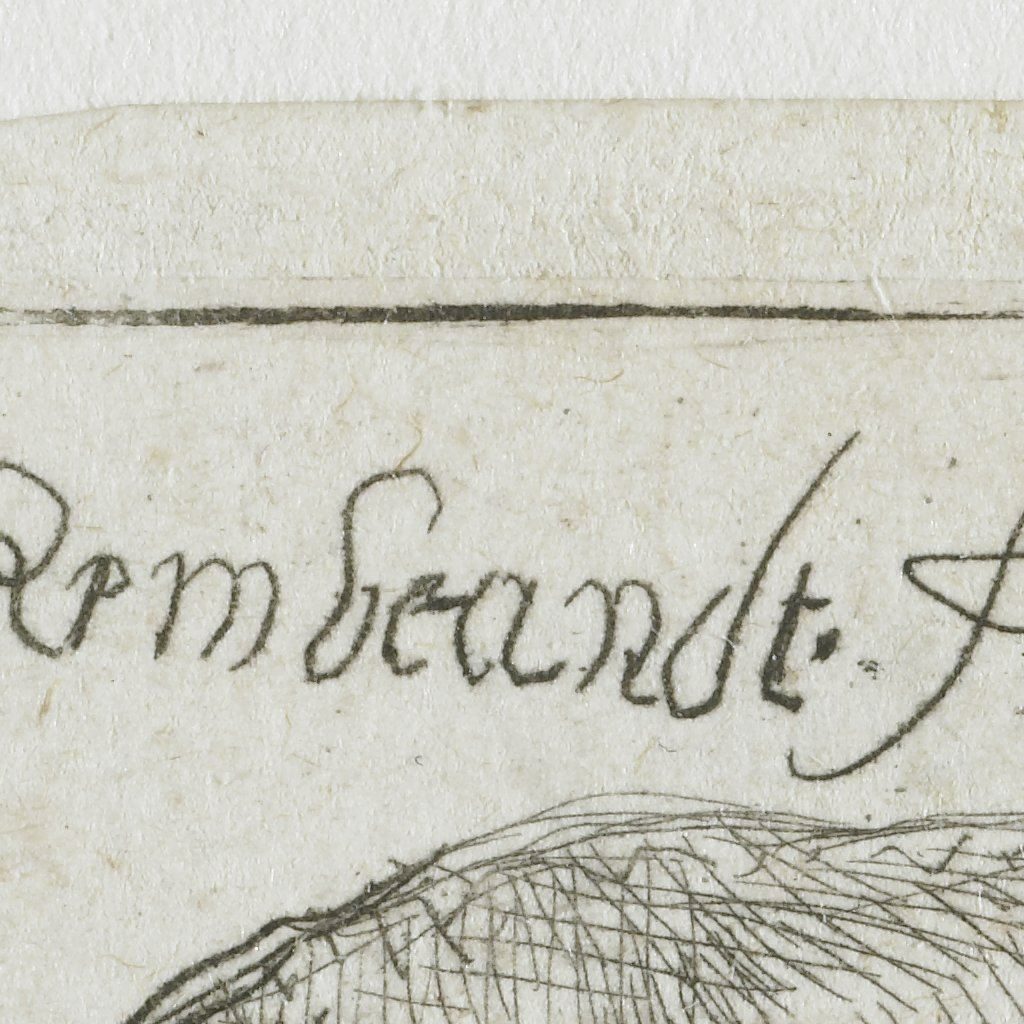 Rembrandt. f